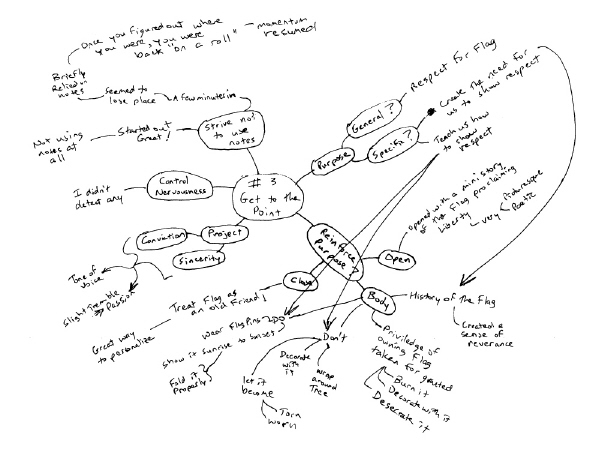 Once you figured out where
you were, you were
back "on a roll" - momentum
resumed
Briefly
Relied on
notes
Seemed to
lose place
A few minutes in
Not using
notes at
all
Started out
Great!
Strive not
to use
notes
I didn't
detect any
Control
Nervousness
# 3
Get to the
Point
Project
Conviction
Sincerity
Tone of
Voice
Slight Tremble
Passion
Purpose
General?
Respect for Flag
Specific?
Create the need for
us to show respect
Teach us how
to show
respect
Reinforce
Purpose?
Open
Opened with a mini story
of the Flag proclaiming
Liberty
very
Picturesque
Poetic
Body
History of the Flag
Created a
sense of
reverance
Priviledge of
owning Flag
taken for granted
Burn it
Decorate with it
Desecrate it
Close
Treat Flag as
an old Friend!
Great way
to personalize
Do
Wear Flag Pins
Show it sunrise to
Fold it
Properly
Don't
let it
become
Torn
Worn
Decorate
with it
Wrap
around
Tree